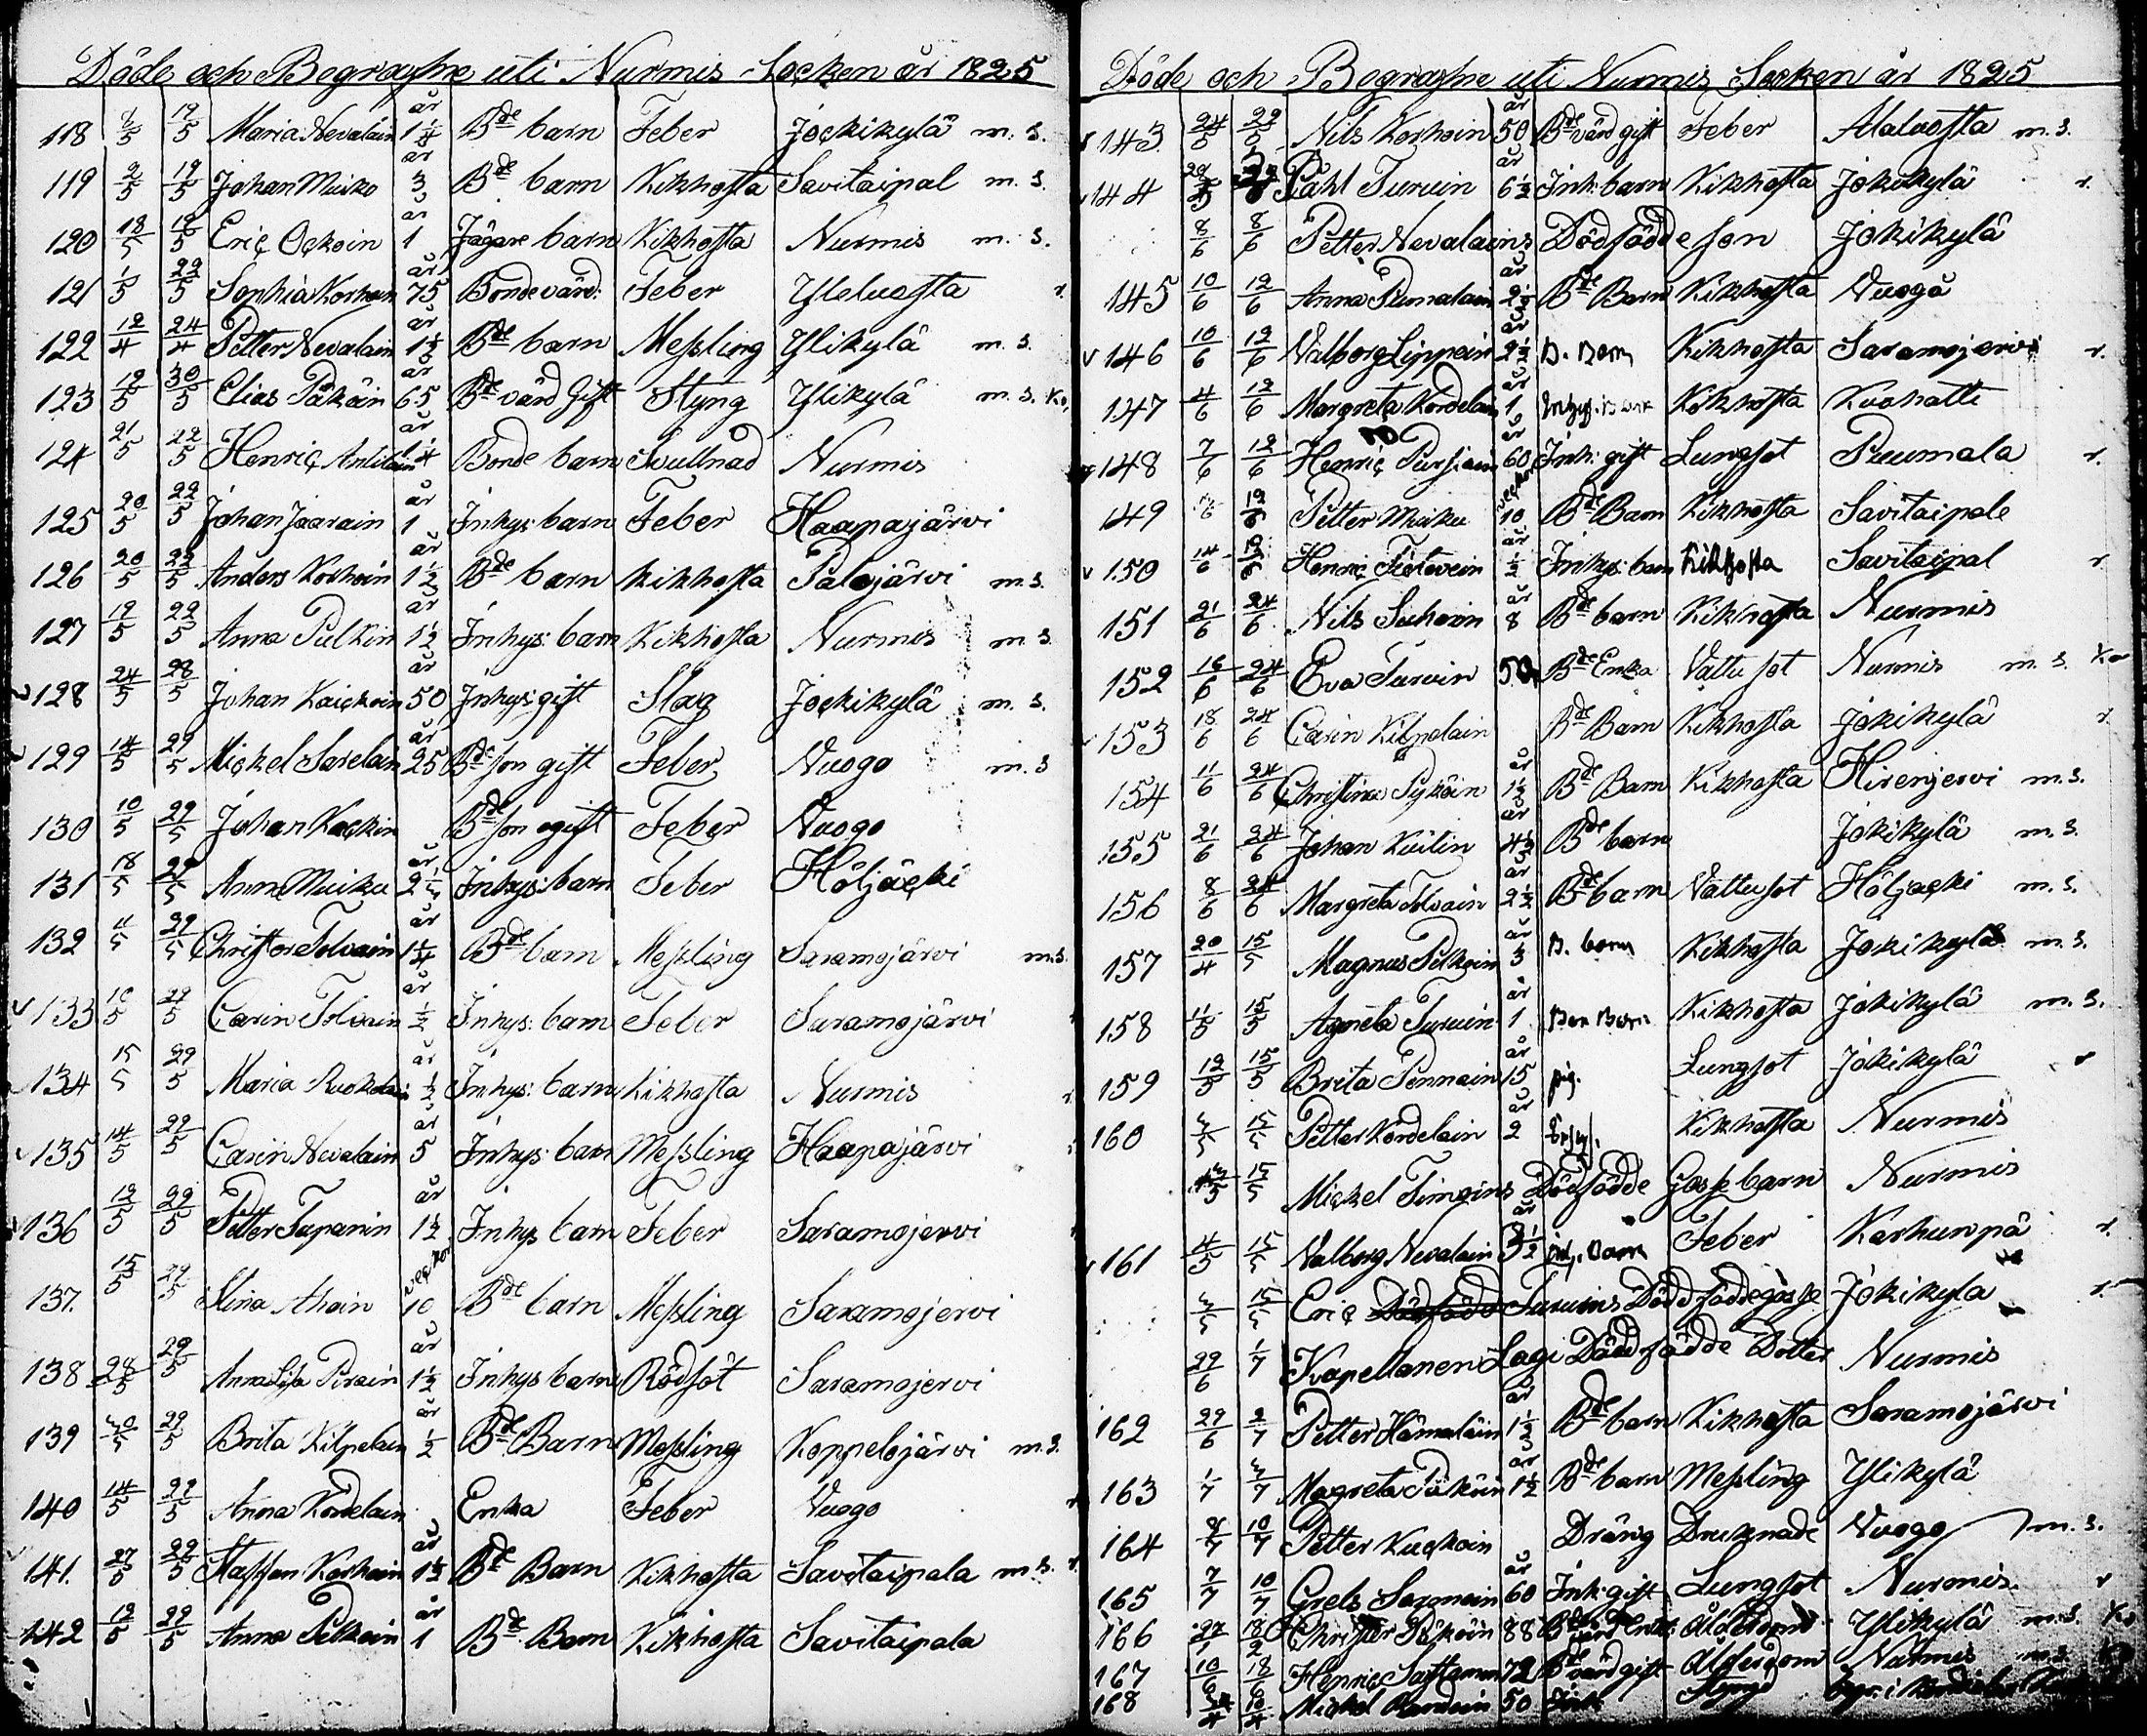 Döde och Begrafne uti Nurmis Socken år 1825
118 19/5 Maria Nevalain år Bde barn Feber Jockikylä m. s.
119 2/5 19/5 Johan Muiko år 3 Bde barn Kikhosta Savitaipal m. s.
120 18/5 Eric Ockoin år 1 Jägare barn Kikhosta Nurmis m. s.
121 1/5 22/5 Sophia Korhoin år 75 Bondevärd: Feber Yleluosta r.
122 12/4 24/4 Petter Nevalain år Bde barn Messling Ylikylä m. s.
123 30/5 Elias Päkäin år 65 Bde värd Gift Styng Ylikylä m. s. Ko,
124 21/5 22/5 Henric år Bonde barn Svullnad Nurmis
125 20/5 22/5 Johan Jaarain år 1 Inhys: barn Feber Haapajärvi
126 20/5 22/5 Anders Korhoin år 1 1/2 Bde barn Kikhosta Palojärvi m. s.
127 19/5 22/5 Anna Pulkin år 1 1/2 Inhys: barn Kikhosta Nurmis m. s.
128 24/5 28/5 Johan Kaickoin år 50 Inhys: gift Slag Jockikylä m. s.
129 14/5 29/5 Mickel Sarelain år 25 Bde son gift Feber Nuogo m. s
130 10/5 29/5 Johan Kockin Bde son ogift Feber Nuogo
131 18/5 29/5 Anna Muiku år Inhys: barn Feber Höljäcki
132 29/5 Christer Tolvain år Bde barn Messling Saramojärvi m. s.
133 10/5 29/5 Carin Tolvain år 1/2 Inhys: barn Feber Saramojärvi
134 15/5 29/5 Maria år 1/2 Inhys: barn Kikhosta Nurmis r.
135 14/5 29/5 Carin Nevalain år 5 Inhys: barn Messling Haapajärvi
136 12/5 29/5 Petter Tapanin år 1 1/2 Inhys barn Feber Saramojervi
137. 15/5 29/5 Stina Ahoin veckor 10 Bde barn Messling Saramojervi
138 28/5 29/5 Anna Lisa Pirain år 1 1/2 Inhys barn Rödsot Saramojervi
139 29/5 Brita Kilpelain år 1/2 Bde Barn Messling Koppelojärvi m. s.
140 14/5 29/5 Anna Kordelain Enka Feber Nuogo
141. 27/5 29/5 Staffan Korhoin år 1 1/2 Bde Barn Kikhosta Savitaipala m. s. r.
142 12/5 29/5 Anna Pelkoin år 1 Bde Barn Kikhosta Savitaipala
Döde och Begrafne uti Nurmis Socken år 1825
143 24/5 29/5 Nils Korhoin år 50 Bde värd gift Feber Alaluosta m. s.
144 Påhl Turuin år 6 1/2 Inh: barn Kikhosta Jokikylä r.
8/6 8/6 Petter Nevalains Dödfödde son Jokikylä
145 10/6 12/6 Anna Pumalain år 2 1/2 Bde Barn Kikhosta Nuogå
v 146 10/6 12/6 Valborg Lippoin år 2 1/2 B. Barn Kikhosta Saramojervi r.
147 4/6 12/6 Margreta Kordelain år 1 Kikhosta Kuohatti
148 7/6 12/6 Henric Pursiain år 60 Inh: gift Lungsot Puumala r.
149 12/6 Petter Muiku veckor 10 Bde Barn Kikhosta Savitaipale
v 150 14/6 19/6 Henric år 1/2 Inhys: barn Kikhosta Savitaipal r
151 21/6 24/6 Nils Suhoin år 8 Bde barn Kikhosta Nurmis
152 16/6 24/6 Eva Turuin 50 Bde Enka Vattusot Nurmis m. s. Ko
153 18/6 24/6 Carin Kilpelain Bde Barn Kikhosta Jokikylä r.
154 11/6 24/6 Christina Pykäin år 1 1/2 Bde Barn Kikhosta Hirenjervi m. s.
155 21/6 24/6 Johan Kuitin år Bde barn Jokikylä m. s.
156 8/6 24/6 Margreta Tolvain år 2 1/2 Bde barn Vattusot Höljäcki m. s.
157 20/4 15/5 Magnus Pelkoin år 3 B. barn Kikhosta Jokikylä m. s.
158 11/5 15/5 Agneta Turuin år 1 Kikhosta Jokikylä m. s.
159 12/5 15/5 Brita Pennain år 15 pig. Lungsot Jokikylä r
160 3/5 15/5 Petter Kordelain år 2 Inhys. Kikhosta Nurmis
15/5 Mickel Timoins Dödfödde Gosse barn Nurmis
161 4/5 15/5 Valborg Nevalain år 3 1/2 Feber Karhunpä r.
3/5 15/5 Eric Dödfödd Turuins Dödfödde gosse Jokikyla r
29/6 1/7 Kapellanen Lagi Dödfödde Dotter Nurmis
162 29/6 2/7 Petter Hämäläin år 1 1/2 Bde barn Kikhosta Saramojärvi
163 1/7 3/7 Magreta Päkäin år 1 1/2 Bde barn Messling Ylikylä
164 10/7 Petter Kuckoin Dräng Drucknade Nuogo m. s.
165 7/7 10/7 Grels Sormoin år 60 Inh: gift Lungsot Nurmis. r
166 Christer Päkäin 88 Ålderdom Ylikylä m. s. Ko
167 10/6 18/6 Henric 72 Bde värd gift Ålderdom Nurmis m. s.
168 Mickel 50 Inh: Styng